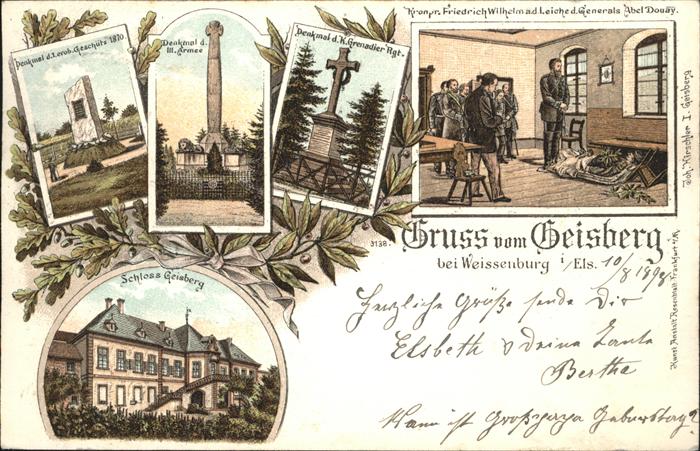 Kronpr. Friedrich Wilhelm a.d. Leiche d. Generals Abel Douay.
Denkmal d. I. erob. Geschüts 1870
Denkmal d.
III. Armee
Denkmal d. K. Grenadier Rgt.
Joh. Hirschler I. Geisberg
3138.
Gruss vom Geisberg
bei Weissenburg i/Els. 10/8 1898
Schloss Geisberg
Herzliche Grüße sende Dir
Elsbeth & deine Tante
Bertha
Wann ist Großpapa Geburtstag?
Kunst Anstalt Rosenblatt Frankfurt a/M.